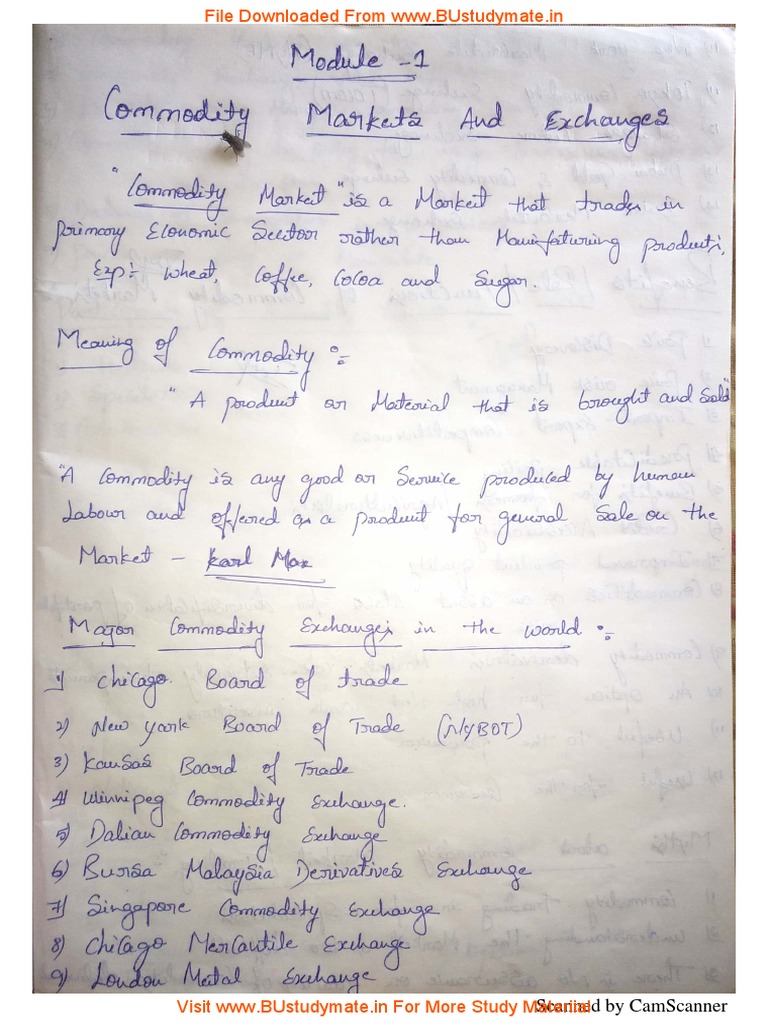 File Downloaded From www.BUstudymate.in
Module -1
Commodity Markets And Exchanges
"Commodity Market" is a Market that trades in
primary Economic Sector rather than Manifeturing products,
Exp:- wheat, Coffee, Cocoa and Sugar.
Meaning of Commodity :-
"A product or Material that is brought and Sold"
"A Commodity is any good or Service produced by human
Labour and offered as a product for general Sale on the
Market - Karl Max
Major Commodity Exchanges in the world :-
1) Chicago Board of trade
2) New york Board of Trade (NYBOT)
3) Kansas Board of Trade
4) Winnipeg Commodity Exchange.
5) Dalian Commodity Exchange
6) Bursa Malaysia Derivatives Exchange
7) Singapore Commodity Exchange
8) Chicago Mercantile Exchange
9) London Metal Exchange
Visit www.BUstudymate.in For More Study Material
Scanned by CamScanner